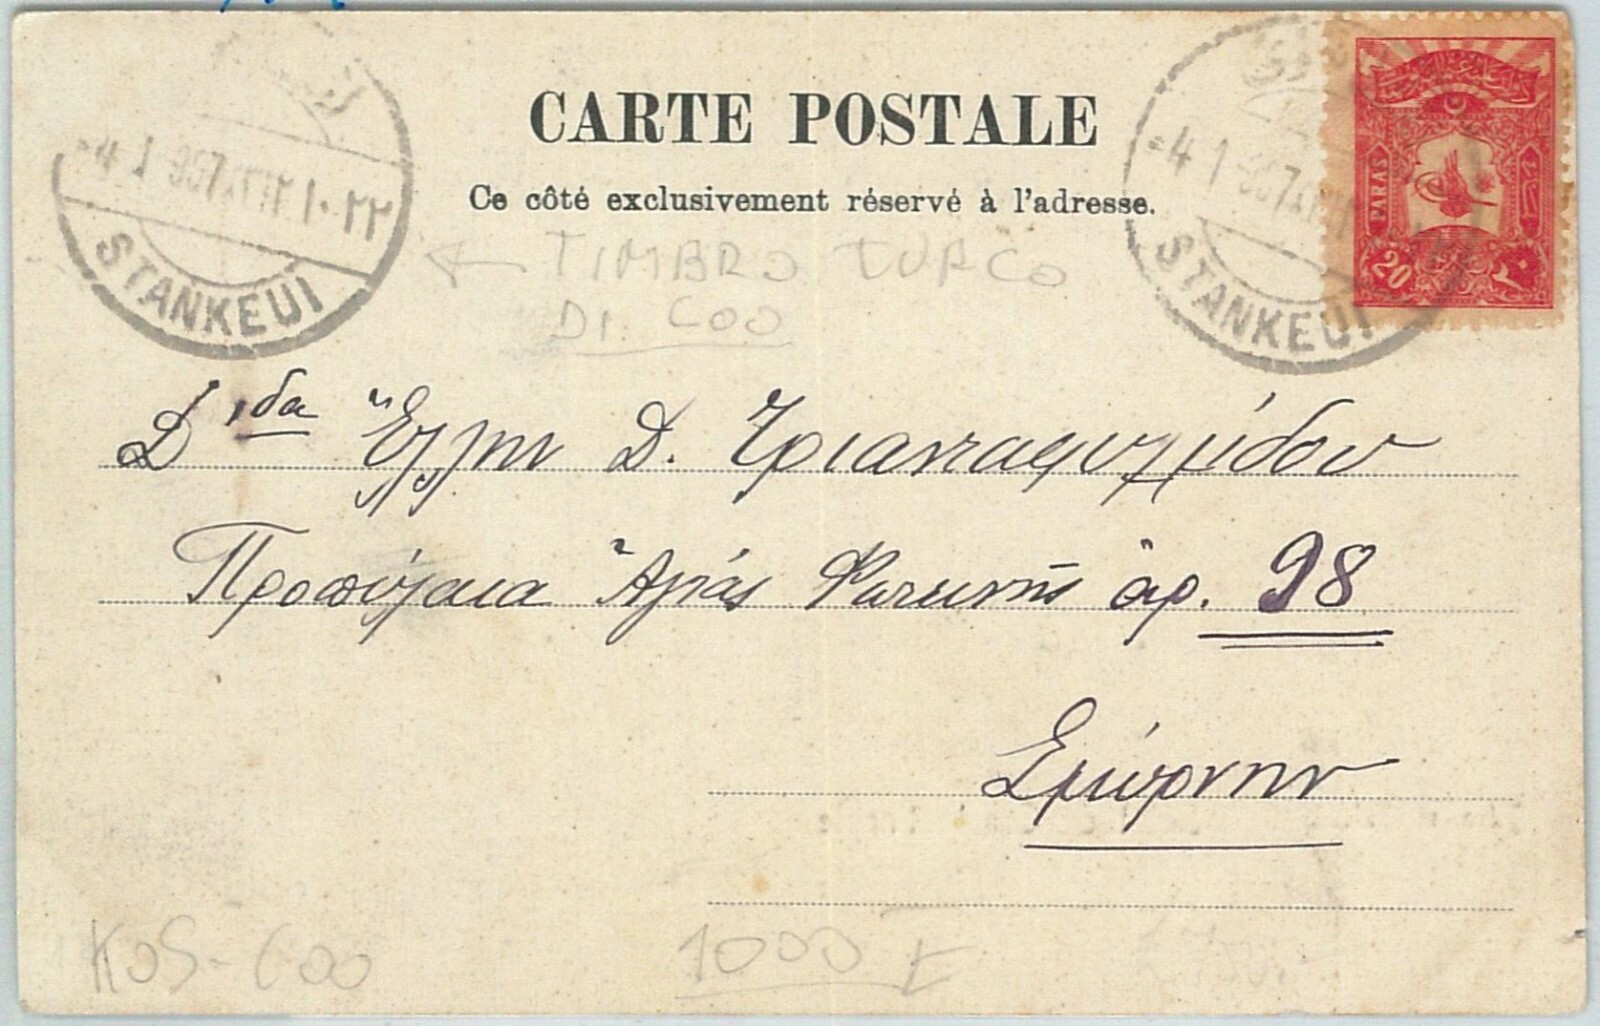 CARTE POSTALE
Ce côté exclusivement réservé à l'adresse.
-4 1 907
STANKEUI
-4 1 907
STANKEUI
PARAS
20 ٢٠
← TIMBRO TURCO
DI COO
Δ/δα Ἕλλην Δ. Τριανταφυλλίδου
Προπύλαια Ἁγίας Φωτεινῆς ἀρ. 28
Σμύρνην
KOS-COO
1000